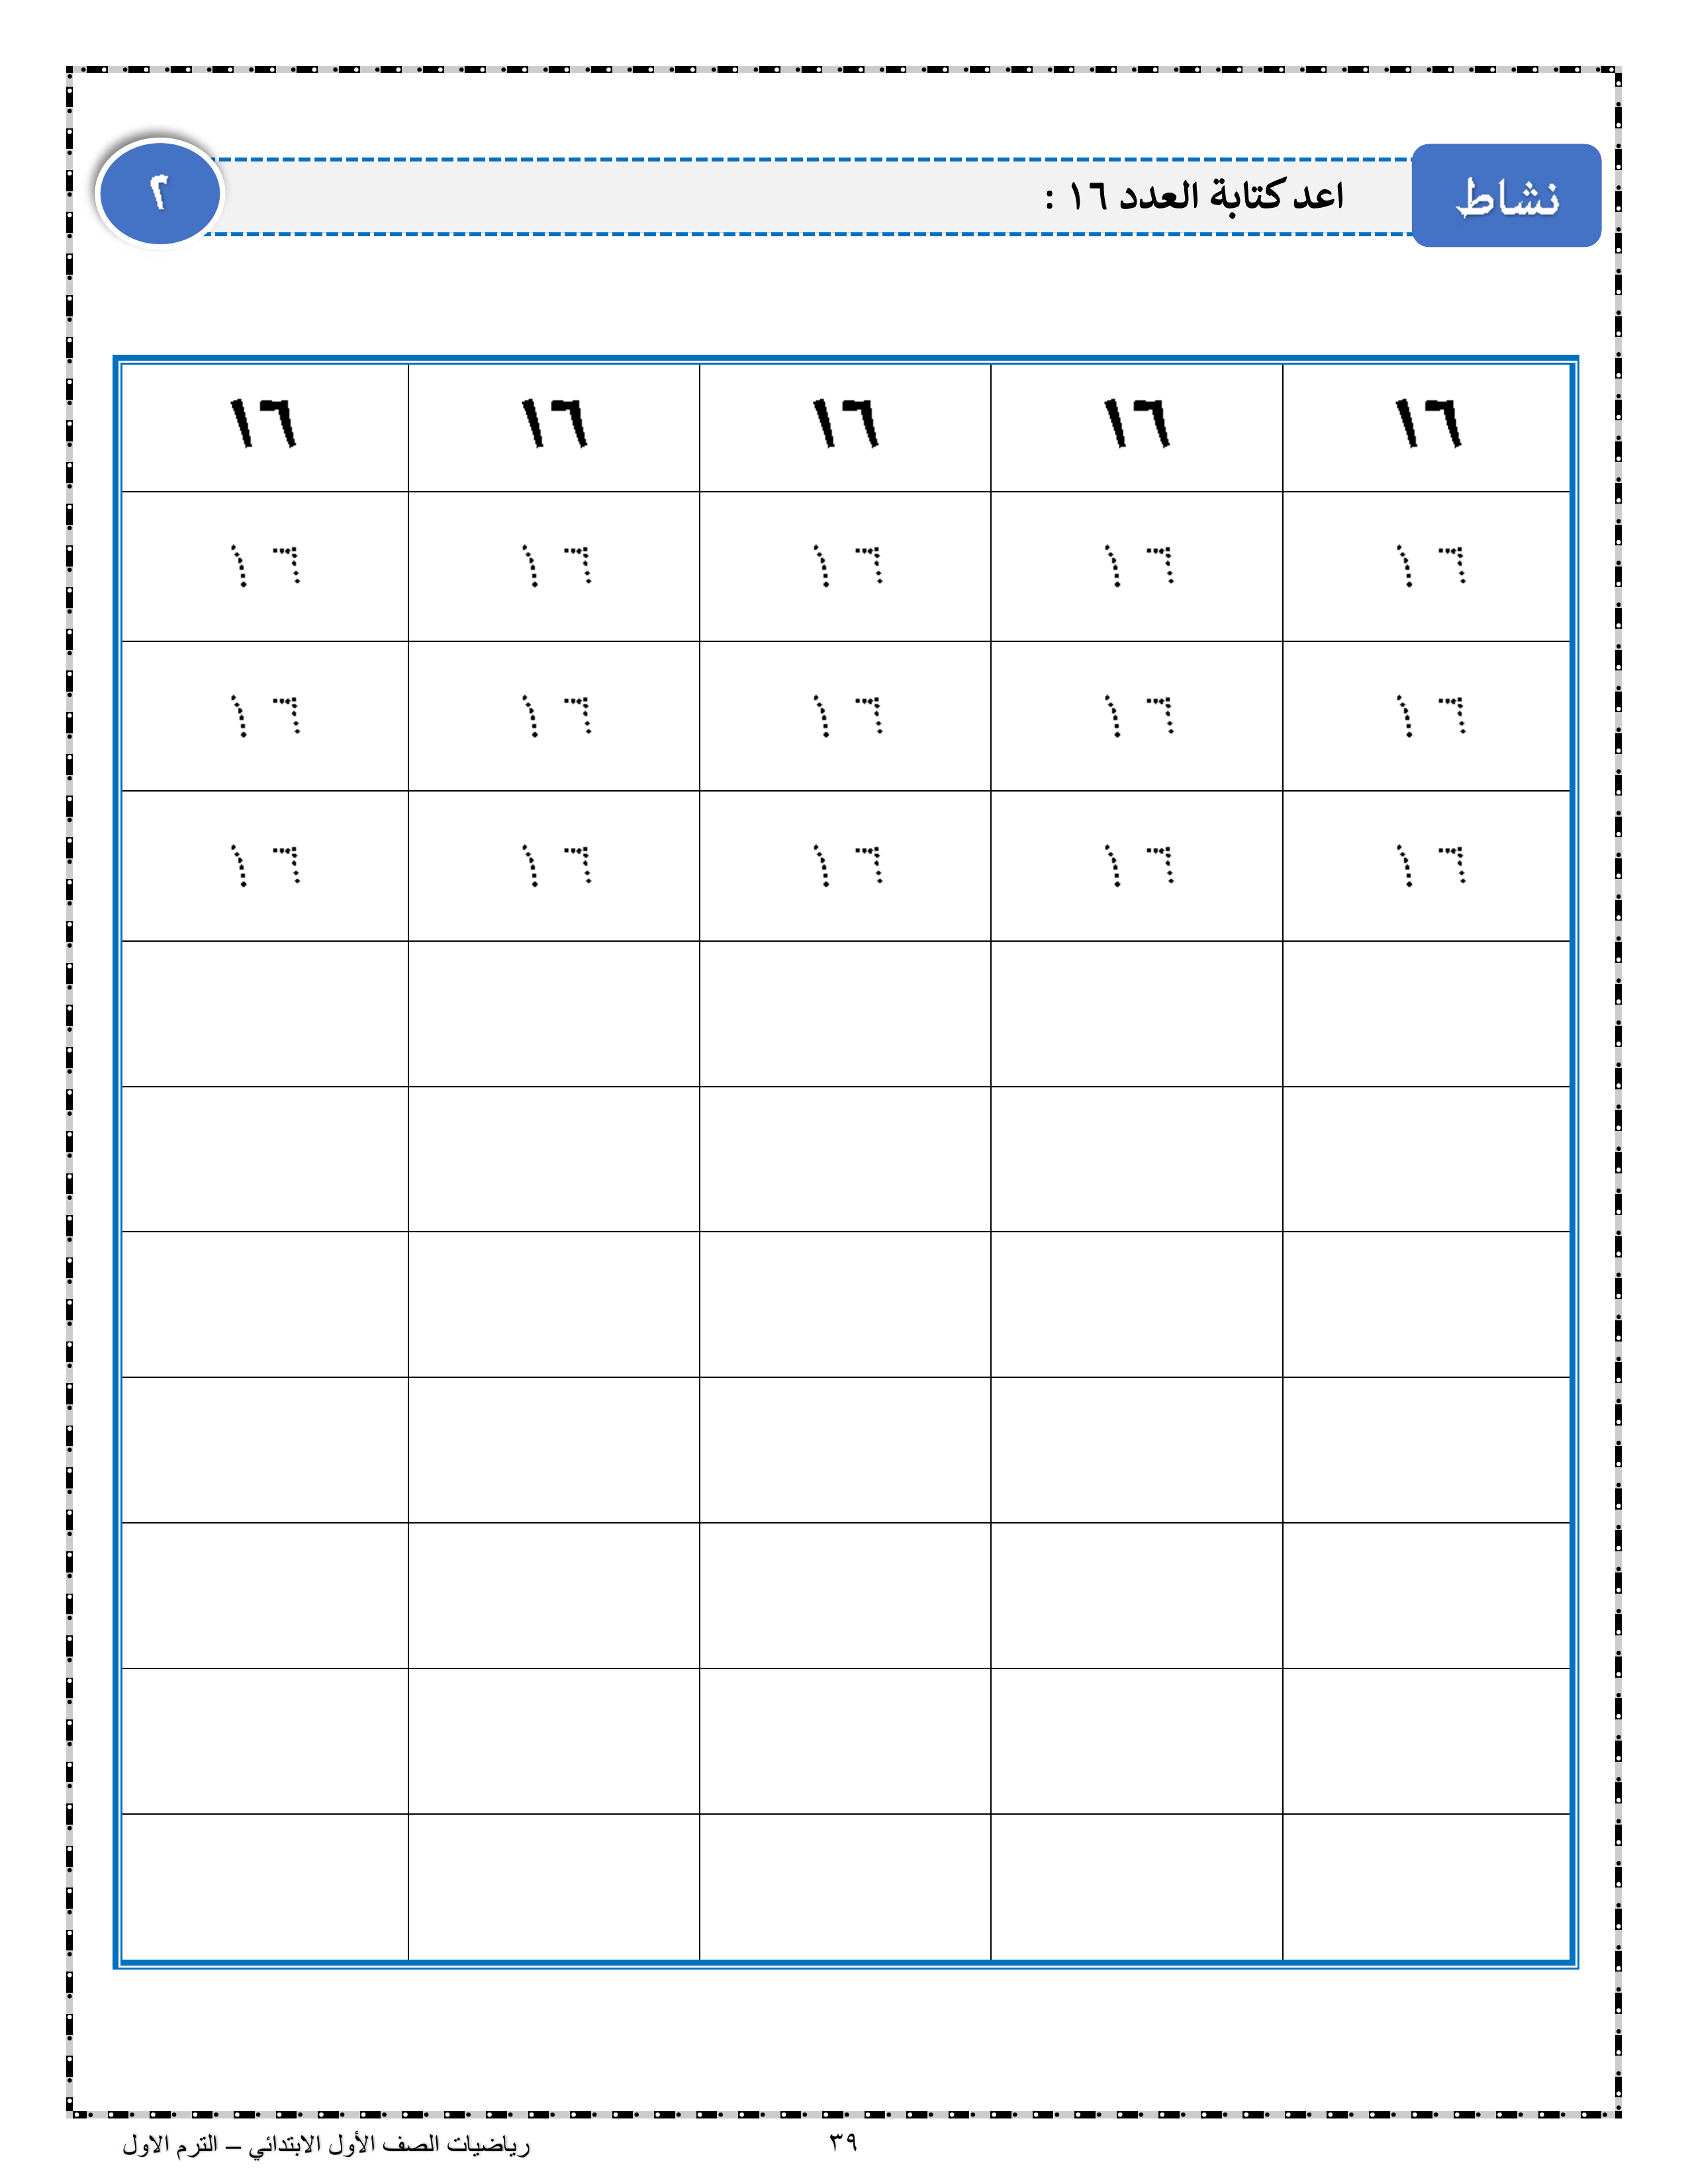 نشاط
اعد كتابة العدد ١٦ :
٢
١٦ ١٦ ١٦ ١٦ ١٦
١٦ ١٦ ١٦ ١٦ ١٦
١٦ ١٦ ١٦ ١٦ ١٦
١٦ ١٦ ١٦ ١٦ ١٦
٣٩
رياضيات الصف الأول الابتدائي – الترم الاول